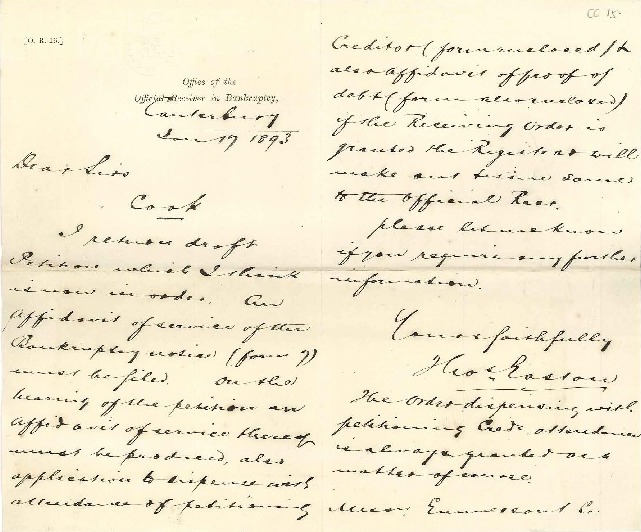 CC 15
[O. R. 16.]
Office of the
Official in Bankruptcy,
Canterbury
Jan 19 1893
Dear Sirs
Cook
I return draft
Petition which I think
is now in order. An
Affidavit of service of the
Bankruptcy notice (form 7)
must be filed. On the
hearing of the petition an
Affidavit of service thereof
must be produced, also
application to dispense with
attendance of petitioning
Creditor (form enclosed) &
also Affidavit of proof of
debt (form also enclosed)
if the Receiving Order is
granted the Registrar will
make out same
to the Official Recr.
please let me know
if you require any further
information.
Yours faithfully
Thos Easton
The order dispensing with
petitioning Creds attendance
is always granted as a
matter of course.
Messrs Co.